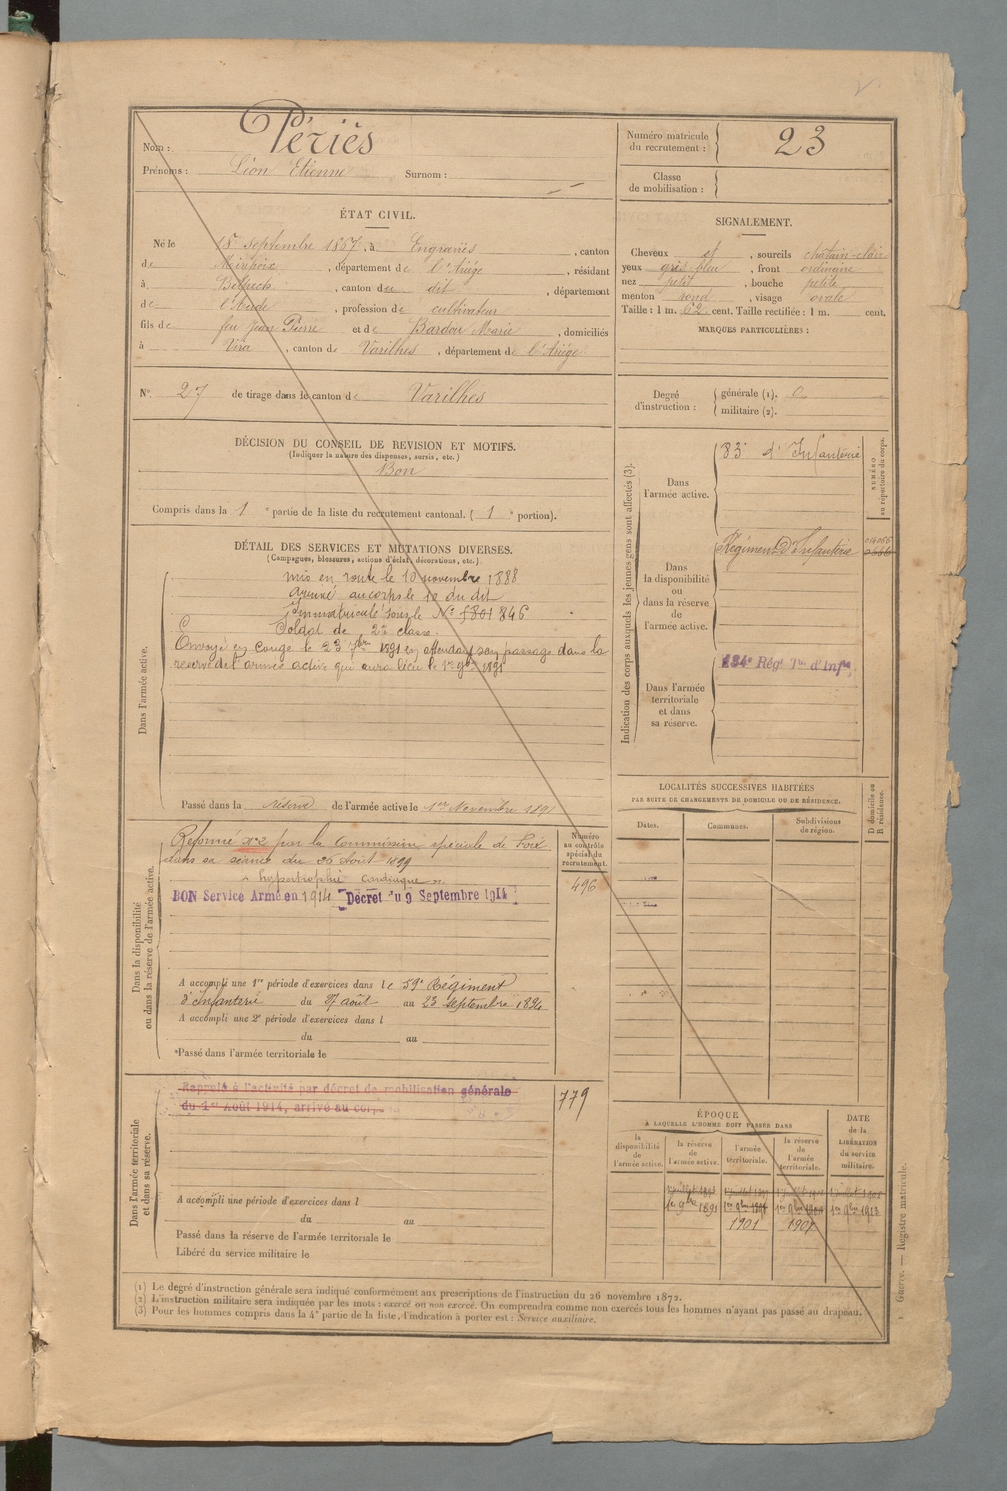 Nom : Périès
Prénoms : Léon Etienne Surnom :
Numéro matricule du recrutement : 23
Classe de mobilisation :
ÉTAT CIVIL.
Né le 18 Septembre 1867, à Engraviès, canton
de Mirepoix, département de l'Ariège, résidant
à Belpech, canton du dit, département
de l'Aude, profession de cultivateur
fils de feu Jean Pierre et de Bardou Marie, domiciliés
à Vira, canton de Varilhes, département de l'Ariège
N° 27 de tirage dans le canton de Varilhes
SIGNALEMENT.
Cheveux et, sourcils châtain-clair
yeux gris bleu, front ordinaire
nez petit, bouche petite
menton rond, visage ovale
Taille : 1 m. 62 cent. Taille rectifiée : 1 m. cent.
MARQUES PARTICULIÈRES :
Degré d'instruction : générale (1). 0
militaire (2).
DÉCISION DU CONSEIL DE REVISION ET MOTIFS.
(Indiquer la nature des dispenses, sursis, etc.)
Bon
Compris dans la 1e partie de la liste du recrutement cantonal. (1e portion).
DÉTAIL DES SERVICES ET MUTATIONS DIVERSES.
(Campagnes, blessures, actions d'éclat, décorations, etc.)
Dans l'armée active.
mis en route le 10 novembre 1888
arrivé au corps le 10 du dit
Immatriculé sous le N°
Soldat de 2e classe.
Envoyé en congé le 23 7bre 1891 en attendant son passage dans la
réserve de l'armée active qui aura lieu le 1er 9bre 1891
Passé dans la réserve de l'armée active le 1er Novembre 1891
Indication des corps auxquels les jeunes gens sont affectés (3).
NUMÉRO au répertoire du corps.
Dans l'armée active.
83e d'Infanterie
Dans la disponibilité ou dans la réserve de l'armée active.
Régiment d'Infanterie
Dans l'armée territoriale et dans sa réserve.
134e Régt Tal d'Infie
Dans la disponibilité ou dans la réserve de l'armée active.
Réformé N°2 par la Commission spéciale de Foix
dans sa séance du 26 Août 1899
« hypertrophie cardiaque ».
BON Service Armé en 1914 Décret du 9 Septembre 1914
A accompli une 1re période d'exercices dans le 59e Régiment
d'Infanterie du 27 août au 23 septembre 1894
A accompli une 2e période d'exercices dans l
du au
Passé dans l'armée territoriale le
Numéro au contrôle spécial du recrutement.
496
Dans l'armée territoriale et dans sa réserve.
Rappelé à l'activité par décret de mobilisation générale
du 1er Août 1914, arrivé au corps
779
A accompli une période d'exercices dans l
du au
Passé dans la réserve de l'armée territoriale le
Libéré du service militaire le
LOCALITÉS SUCCESSIVES HABITÉES
PAR SUITE DE CHANGEMENTS DE DOMICILE OU DE RÉSIDENCE.
D domicile ou R résidence.
Dates. Communes. Subdivisions de région.
ÉPOQUE
A LAQUELLE L'HOMME DOIT PASSER DANS
la disponibilité de l'armée active.
la réserve de l'armée active.
l'armée territoriale.
la réserve de l'armée territoriale.
DATE de la LIBÉRATION du service militaire.
1er 9bre 1891 1er 9bre 1913
1901 1907
(1) Le degré d'instruction générale sera indiqué conformément aux prescriptions de l'instruction du 26 novembre 1872.
(2) L'instruction militaire sera indiquée par les mots : exercé ou non exercé. On comprendra comme non exercés tous les hommes n'ayant pas passé au drapeau.
(3) Pour les hommes compris dans la 4e partie de la liste, l'indication à porter est : Service auxiliaire.
Guerre. — Registre matricule.